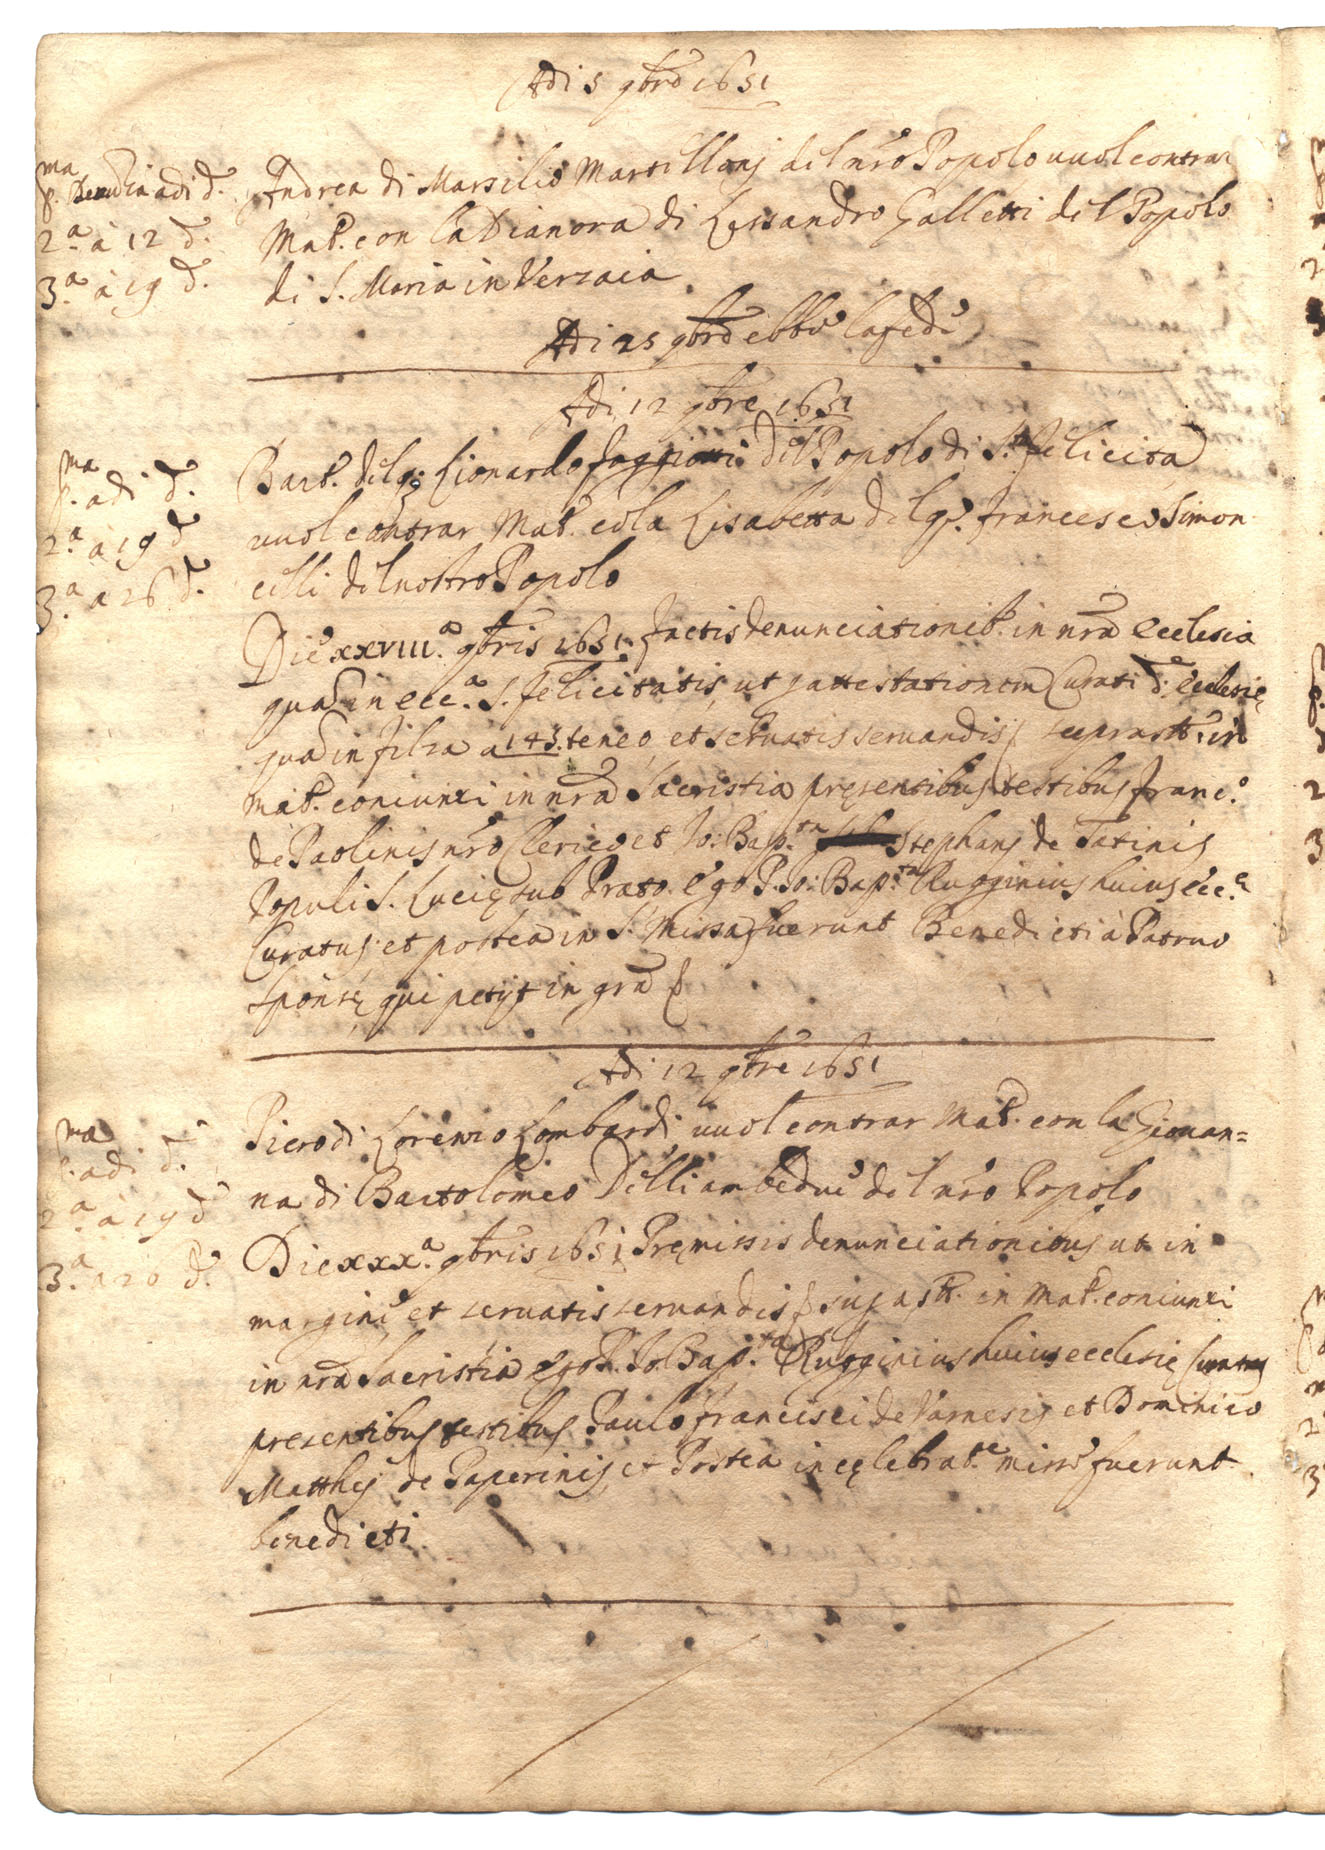 Adi 5 9bre 1651
p.ma Denu.in adi d.o
2.a à 12 d.o
3.a à 19 d.o
Andrea di Marsilio Martellanj del nro Popolo uuol contrar
Mat.o con la Dianora di Lessandro Galletti del Popolo
di S. Maria in Verzaia
Adi 25 9bre ebbe la fede
Adi 12 9bre 1651
p.ma adi d.o
2.a a 19 d.o
3.a a 26 d.o
Bart.o del q: Lionardo del Popolo di S.ta Felicita
uuol contrar Mat.o cola Lisabetta del q.o Francesco Simon
celli del nostro Popolo
Die XXVIII.a 9bris 1651. factis denunciationib.s in nra Ecclesia
qua in ecc.a S. Felicitatis, ut p attestationem Curati d.e Ecclesię
qua in filza a 143. teneo, et seruatis seruandis supras.ti in
mat.o coniuncti in nra Sacristia pręsentibus testibus Franc.o
de Paolinis nro Clerico et Jo: Bap.ta Stephanj de Tatinis
Populi S. Lucię sub Prato. Ego P. Jo: Bap.ta Rugginius huius ecc.e
Curatus et postea in S. Missa fuerunt Benedicti à Patruo
Sponsę qui petijt in gra
Adi 12 9bre 1651
p.ma adi d.o
2.a à 19 d.o
3.a a 26 d.o
Piero di Lorenzo Lombardi uuol contrar Mat.o con la Giouan=
na di Bartolomeo Delli ambedue del nro Popolo
Die XXX.a 9bris 1651 Pręmissis denunciationibus ut in
margine et seruatis seruandis supas.ti in Mat.o coniuncti
in nra Sacristia Ego P. Jo: Bap.ta Rugginius huius ecclesię Curatus
presentibus testibus Paulo Francisci de Varnesis et Dominico
Matthej de Paperinis, et Postea in cęlebrat.ne missę fuerunt
benedicti.